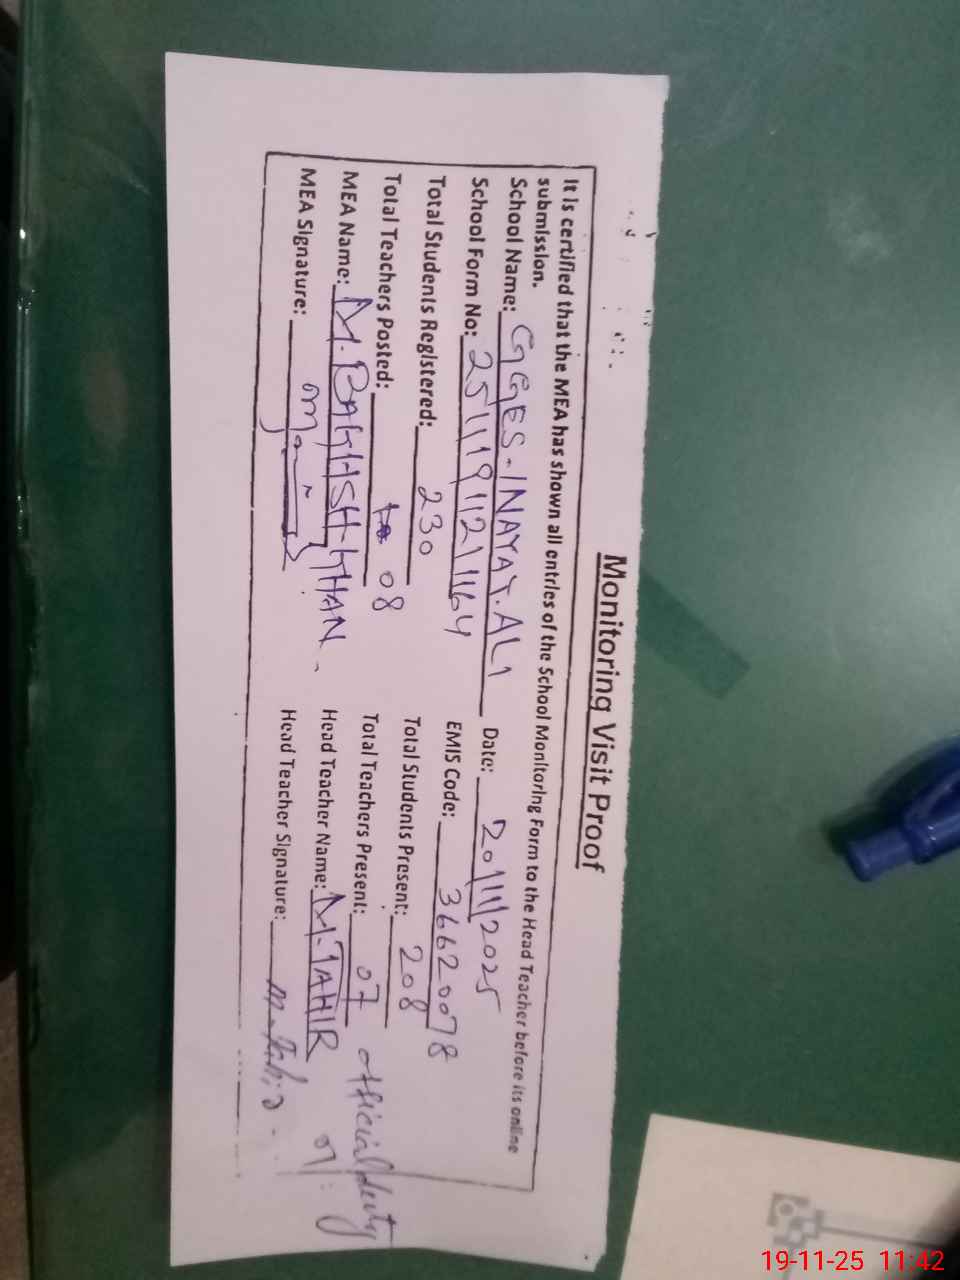 Monitoring Visit Proof
It is certified that the MEA has shown all entries of the School Monitoring Form to the Head Teacher before its online
submission.
School Name: GGES-INAYAT.ALI Date: 20/11/2025
School Form No: 2511191121164 EMIS Code: 36620078
Total Students Registered: 230 Total Students Present: 208
Total Teachers Posted: 08 Total Teachers Present: 07 official duty 01
MEA Name: M.BAKHSH-KHAN. Head Teacher Name: M.TAHIR
MEA Signature: Head Teacher Signature: M. Tahir
19-11-25 11:42